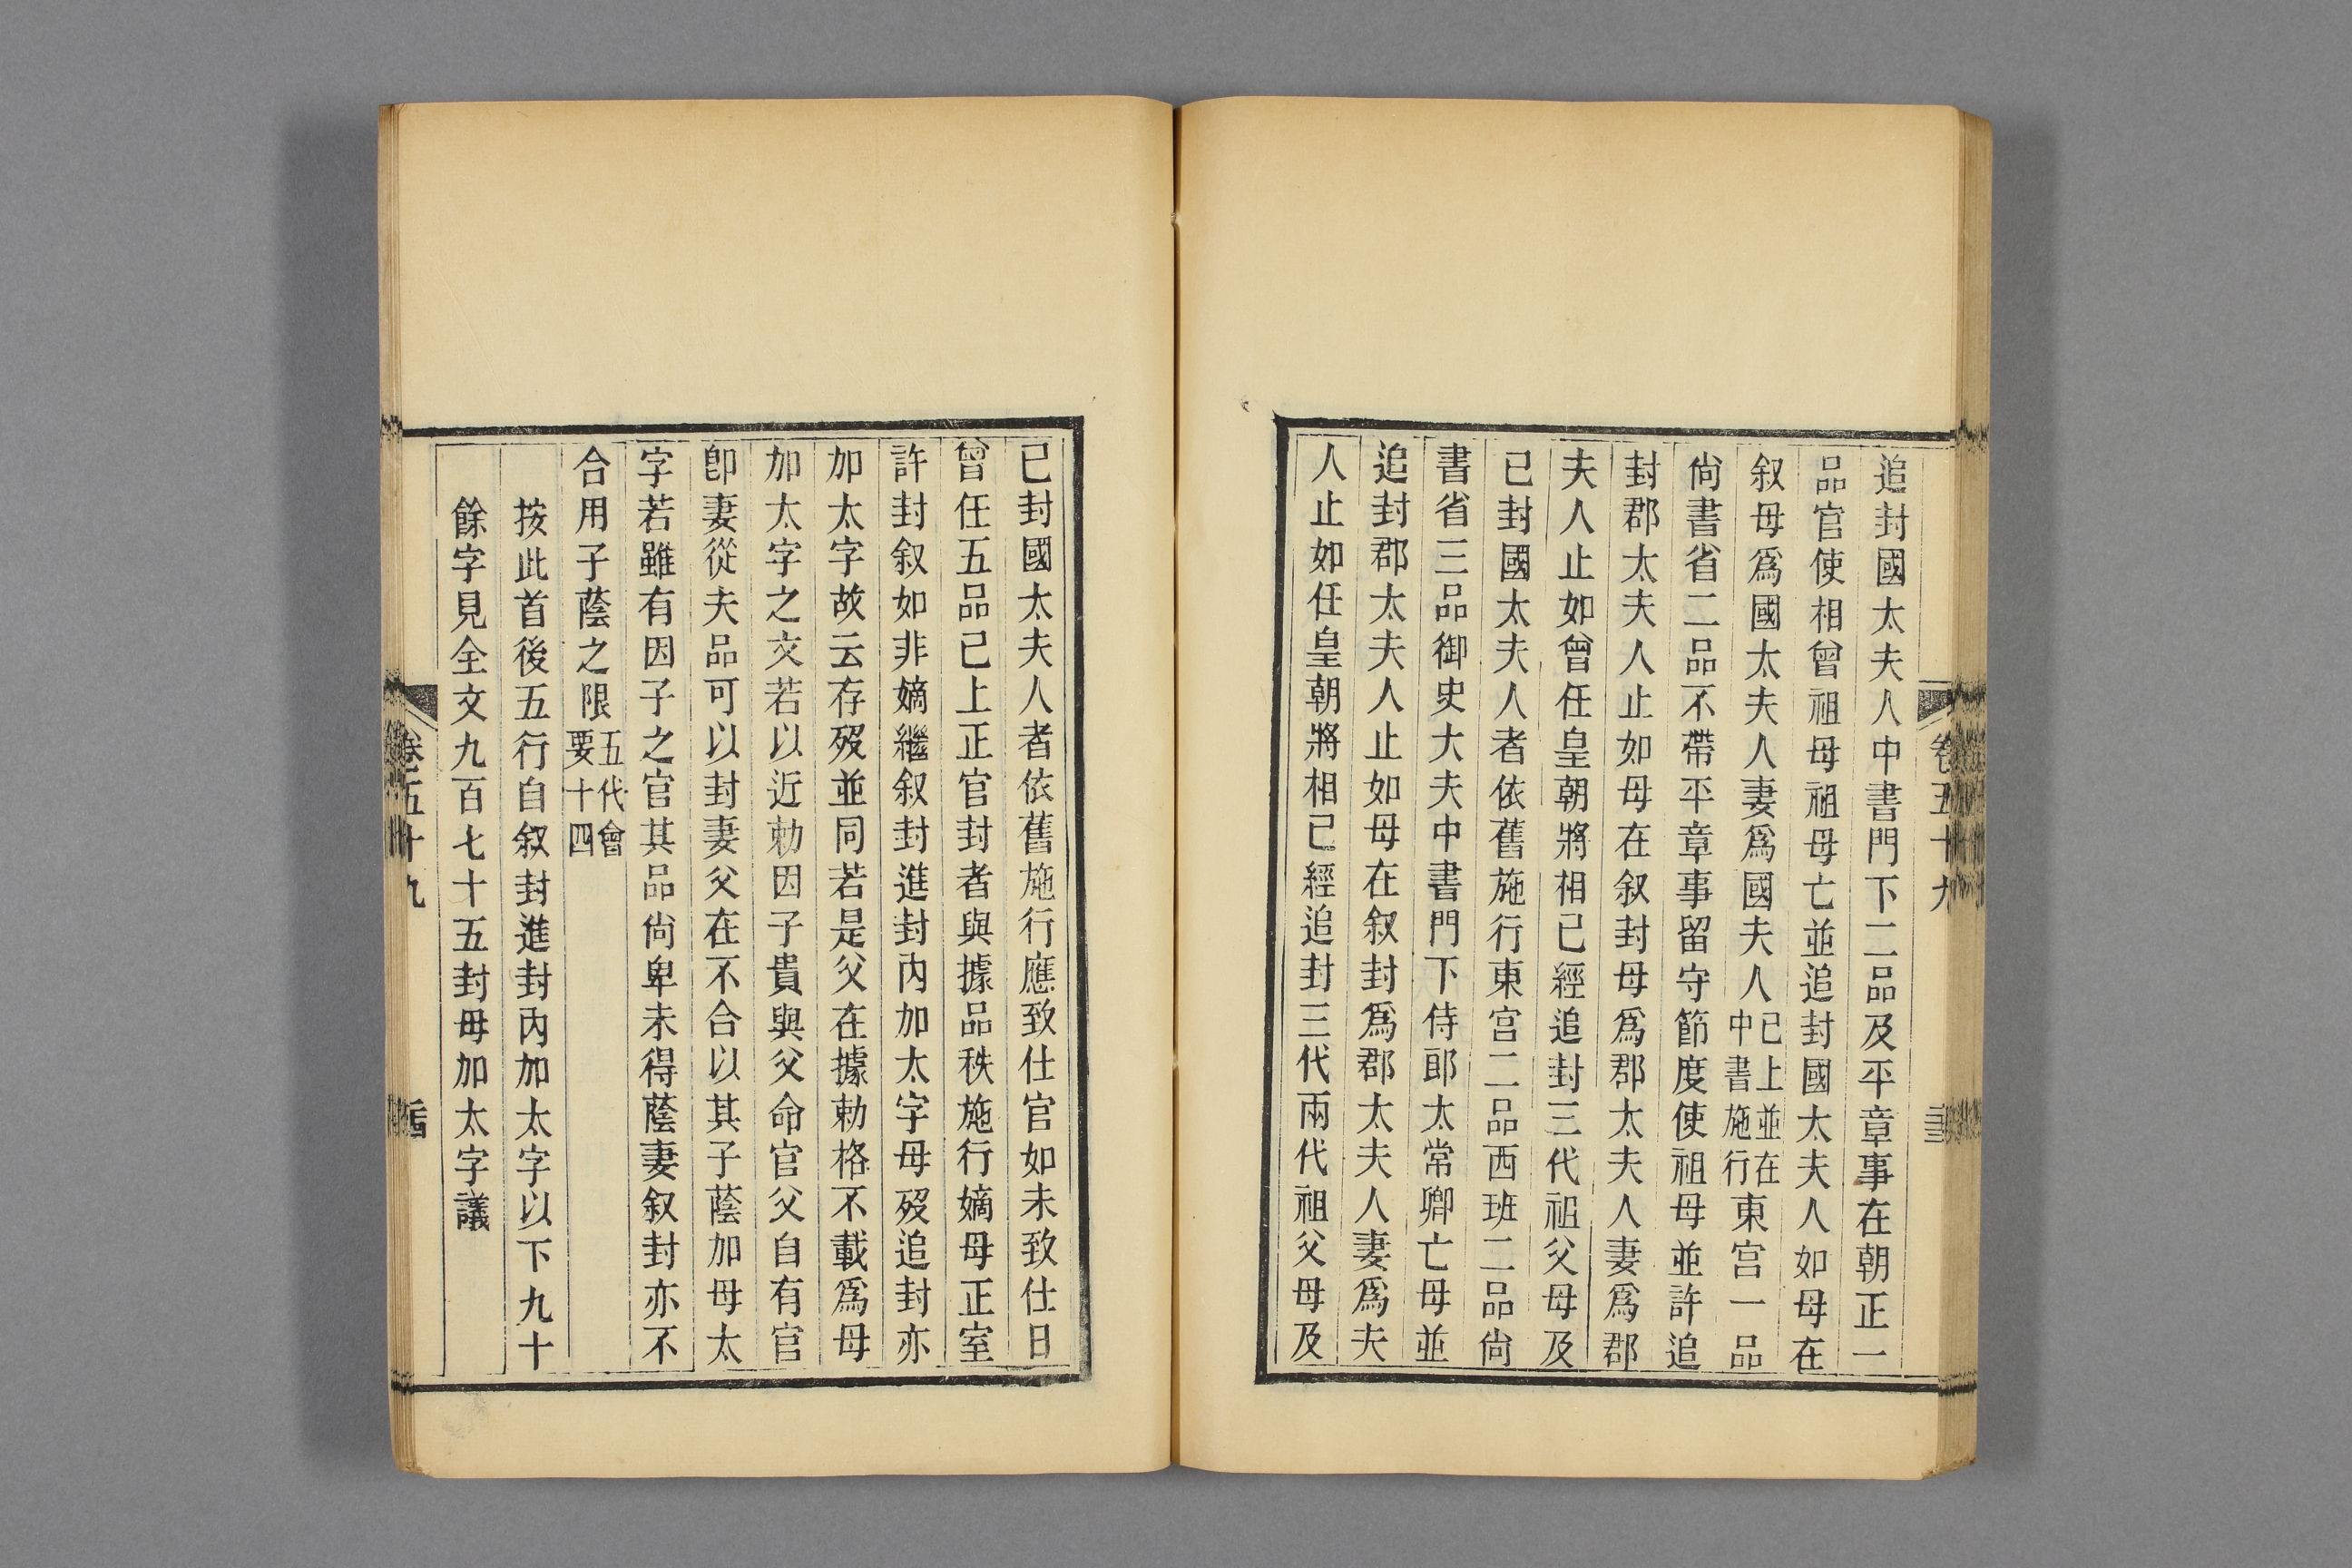 追封國太夫人中書門下二品及平章事在朝正一
品官使相曾祖母祖母亡並追封國太夫人如母在
叙母爲國太夫人妻爲國夫人已上並在中書施行東宫一品
尚書省二品不帶平章事留守節度使祖母並許追
封郡太夫人止如母在叙封母爲郡太夫人妻爲郡
夫人止如曾任皇朝將相已經追封三代祖父母及
已封國太夫人者依舊施行東宫二品西班二品尚
書省三品御史大夫中書門下侍郎太常卿亡母並
追封郡太夫人止如母在叙封爲郡太夫人妻爲夫
人止如任皇朝將相已經追封三代兩代祖父母及
卷五十九
已封國太夫人者依舊施行應致仕官如未致仕日
曾任五品已上正官封者與據品秩施行嫡母正室
許封叙如非嫡繼叙封進封内加太字母歿追封亦
加太字故云存歿並同若是父在據勅格不載爲母
加太字之文若以近勅因子貴與父命官父自有官
卽妻從夫品可以封妻父在不合以其子蔭加母太
字若雖有因子之官其品尚卑未得蔭妻叙封亦不
合用子蔭之限五代會要十四
按此首後五行自叙封進封内加太字以下九十
餘字見全文九百七十五封母加太字議
卷五十九